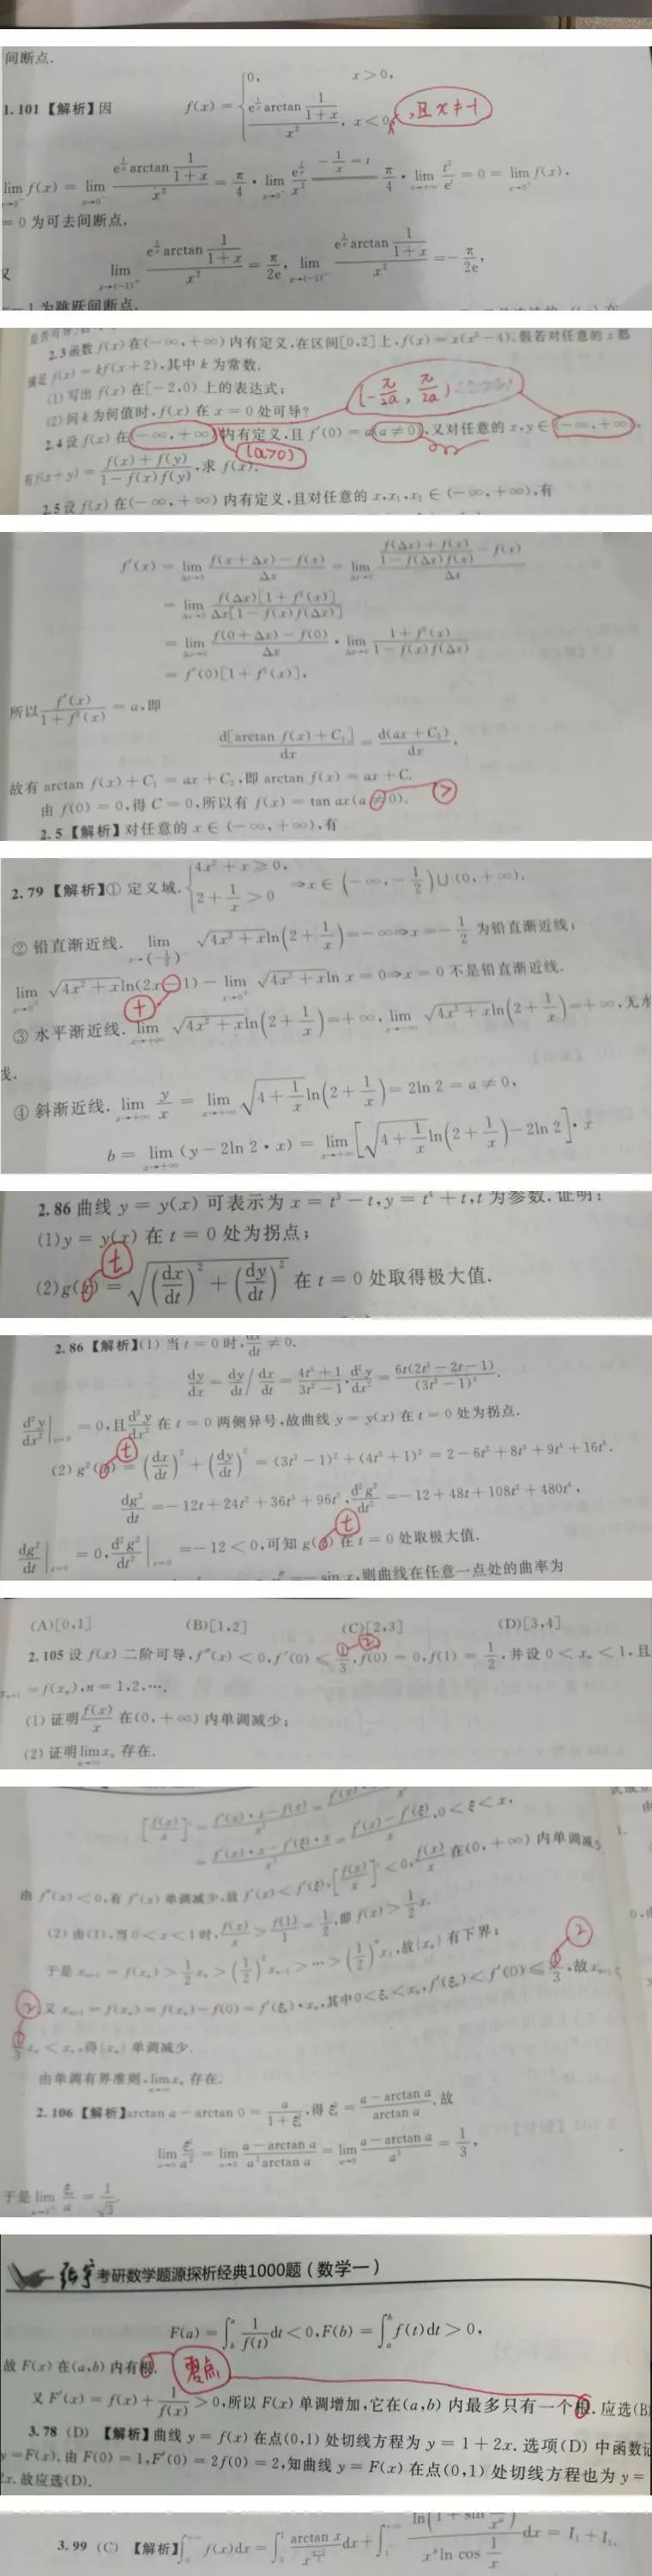 间断点.
1.101【解析】因 f(x) = { 0, x > 0, e^{1/x} arctan \frac{1}{1+x} / x², x < 0 ,且 x ≠ -1
lim_{x→0⁻} f(x) = lim_{x→0⁻} e^{1/x} arctan \frac{1}{1+x} / x² = π/4 · lim_{x→0⁻} e^{1/x}/x² = (-1/x = t) π/4 · lim_{t→+∞} t²/e^t = 0 = lim_{x→0⁺} f(x),
= 0 为可去间断点.
又 lim_{x→(-1)⁺} e^{1/x} arctan \frac{1}{1+x} / x² = π/2e, lim_{x→(-1)⁻} e^{1/x} arctan \frac{1}{1+x} / x² = -π/2e,
-1 为跳跃间断点.
2.3 函数 f(x) 在(-∞,+∞) 内有定义,在区间[0,2]上,f(x) = x(x²-4),假若对任意的 x 都
满足 f(x) = kf(x+2),其中 k 为常数.
(1) 写出 f(x) 在[-2,0) 上的表达式;
(2) 问 k 为何值时,f(x) 在 x = 0 处可导?
(-π/2a, π/2a)
2.4 设 f(x) 在(-∞,+∞)内有定义,且 f'(0) = a(a≠0),又对任意的 x,y ∈ (-∞,+∞),
(a>0)
有 f(x+y) = \frac{f(x)+f(y)}{1-f(x)f(y)},求 f(x).
2.5 设 f(x) 在(-∞,+∞) 内有定义,且对任意的 x,x₁,x₂ ∈ (-∞,+∞),有
f'(x) = lim_{Δx→0} \frac{f(x+Δx)-f(x)}{Δx} = lim_{Δx→0} \frac{\frac{f(Δx)+f(x)}{1-f(Δx)f(x)}-f(x)}{Δx}
= lim_{Δx→0} \frac{f(Δx)[1+f²(x)]}{Δx[1-f(x)f(Δx)]}
= lim_{Δx→0} \frac{f(0+Δx)-f(0)}{Δx} · lim_{Δx→0} \frac{1+f²(x)}{1-f(x)f(Δx)}
= f'(0)[1+f²(x)],
所以 \frac{f'(x)}{1+f²(x)} = a,即
\frac{d[arctan f(x)+C₁]}{dx} = \frac{d(ax+C₂)}{dx},
故有 arctan f(x)+C₁ = ax+C₂,即 arctan f(x) = ax+C.
由 f(0) = 0,得 C = 0,所以有 f(x) = tan ax(a≠0). >
2.5【解析】对任意的 x ∈ (-∞,+∞),有
2.79【解析】① 定义域. { 4x²+x≥0, 2+1/x>0 ⇒x∈ (-∞,-1/2)∪(0,+∞).
② 铅直渐近线. lim_{x→(-1/2)⁻} √(4x²+x) ln(2+1/x)=-∞⇒x=-1/2 为铅直渐近线;
lim_{x→0⁺} √(4x²+x) ln(2x-1) - lim_{x→0⁺} √(4x²+x) ln x = 0⇒x = 0 不是铅直渐近线.
+
③ 水平渐近线. lim_{x→+∞} √(4x²+x) ln(2+1/x)=+∞, lim_{x→-∞} √(4x²+x) ln(2+1/x)=+∞,无水
线.
④ 斜渐近线. lim_{x→+∞} y/x = lim_{x→+∞} √(4+1/x) ln(2+1/x)=2ln 2=a≠0,
b = lim_{x→+∞} (y-2ln 2·x) = lim_{x→+∞} [√(4+1/x) ln(2+1/x)-2ln 2]·x
2.86 曲线 y = y(x) 可表示为 x = t³-t,y = t⁴+t,t 为参数.证明:
(1)y = y(x) 在 t = 0 处为拐点;
t
(2)g(x) = √((dx/dt)²+(dy/dt)²) 在 t = 0 处取得极大值.
2.86【解析】(1) 当 t = 0 时, dx/dt ≠ 0.
dy/dx = dy/dt / dx/dt = \frac{4t³+1}{3t²-1}, d²y/dx² = \frac{6t(2t³-2t-1)}{(3t²-1)³}.
d²y/dx²|_{t=0} = 0,且 d²y/dx² 在 t = 0 两侧异号,故曲线 y = y(x) 在 t = 0 处为拐点.
t
(2) g²(x) = (dx/dt)²+(dy/dt)² = (3t²-1)²+(4t³+1)² = 2-6t²+8t³+9t⁴+16t⁶.
dg²/dt = -12t+24t²+36t³+96t⁵, d²g²/dt² = -12+48t+108t²+480t⁴,
t
dg²/dt|_{t=0} = 0, d²g²/dt²|_{t=0} = -12 < 0,可知 g(x) 在 t = 0 处取极大值.
-sin x,则曲线在任意一点处的曲率为
(A)[0,1] (B)[1,2] (C)[2,3] (D)[3,4]
2
2.105 设 f(x) 二阶可导,f''(x) < 0,f'(0) ≤ 1/3,f(0) = 0,f(1) = 1/2,并设 0 < xₙ < 1,且
xₙ₊₁ = f(xₙ),n = 1,2,….
(1) 证明 f(x)/x 在(0,+∞) 内单调减少;
(2) 证明 lim_{n→∞} xₙ 存在.
[f(x)/x]' = \frac{f'(x)·x-f(x)}{x²} =
= \frac{f'(x)·x-f'(ξ)·x}{x²} = \frac{f'(x)-f'(ξ)}{x},0<ξ<x,
由 f''(x) < 0,有 f'(x) 单调减少,故 f'(x) < f'(ξ),[f(x)/x]' < 0, f(x)/x 在(0,+∞) 内单调减少
(2) 由(1),当 0 < x < 1 时, f(x)/x > f(1)/1 = 1/2,即 f(x) > 1/2 x.
于是 xₙ₊₁ = f(xₙ) > 1/2 xₙ > (1/2)² xₙ₋₁ > … > (1/2)ⁿ x₁,故{xₙ} 有下界;
2
又 xₙ₊₁ = f(xₙ) = f(xₙ)-f(0) = f'(ξₙ)·xₙ,其中 0 < ξₙ < xₙ,f'(ξₙ) < f'(0) ≤ 1/3,故 xₙ₊₁ ≤
2
1/3 xₙ < xₙ,得{xₙ} 单调减少.
由单调有界准则,lim_{n→∞} xₙ 存在.
2.106【解析】arctan a-arctan 0 = \frac{a}{1+ξ²},得 ξ² = \frac{a-arctan a}{arctan a},故
lim_{a→0} ξ²/a² = lim_{a→0} \frac{a-arctan a}{a² arctan a} = lim_{a→0} \frac{a-arctan a}{a³} = 1/3,
于是 lim_{a→0⁺} ξ/a = 1/√3.
张宇考研数学题源探析经典1000题(数学一)
F(a) = ∫_b^a \frac{1}{f(t)}dt < 0,F(b) = ∫_a^b f(t)dt > 0,
故 F(x) 在(a,b) 内有根. 零点
又 F'(x) = f(x)+\frac{1}{f(x)} > 0,所以 F(x) 单调增加,它在(a,b) 内最多只有一个根.应选(B
3.78 (D) 【解析】曲线 y = f(x) 在点(0,1) 处切线方程为 y = 1+2x.选项(D) 中函数记
y=F(x).由 F(0) = 1,F'(0) = 2f(0) = 2,知曲线 y = F(x) 在点(0,1) 处切线方程也为 y =
2x.故应选(D).
3.99 (C) 【解析】∫_0^{+∞} f(x)dx = ∫_0^1 arctan x dx + ∫_1^{+∞} ln(1+sin ) / x^b ln cos 1/x dx = I₁+I₂.